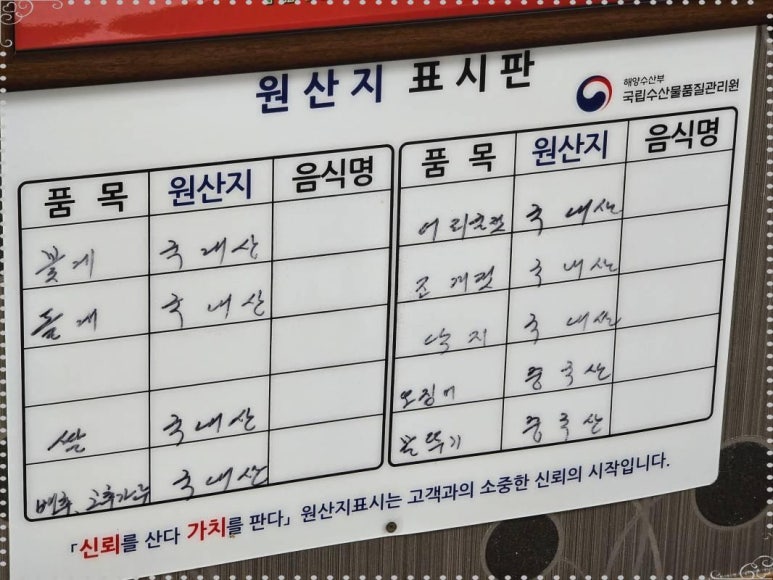 원산지 표시판
해양수산부
국립수산물품질관리원
품 목 원산지 음식명
꽃게 국내산
돌게 국내산
쌀 국내산
배추, 고추가루 국내산
품 목 원산지 음식명
어리굴젓 국내산
조개젓 국내산
낙지 국내산
오징어 중국산
꼴뚜기 중국산
「신뢰를 산다 가치를 판다」 원산지표시는 고객과의 소중한 신뢰의 시작입니다.